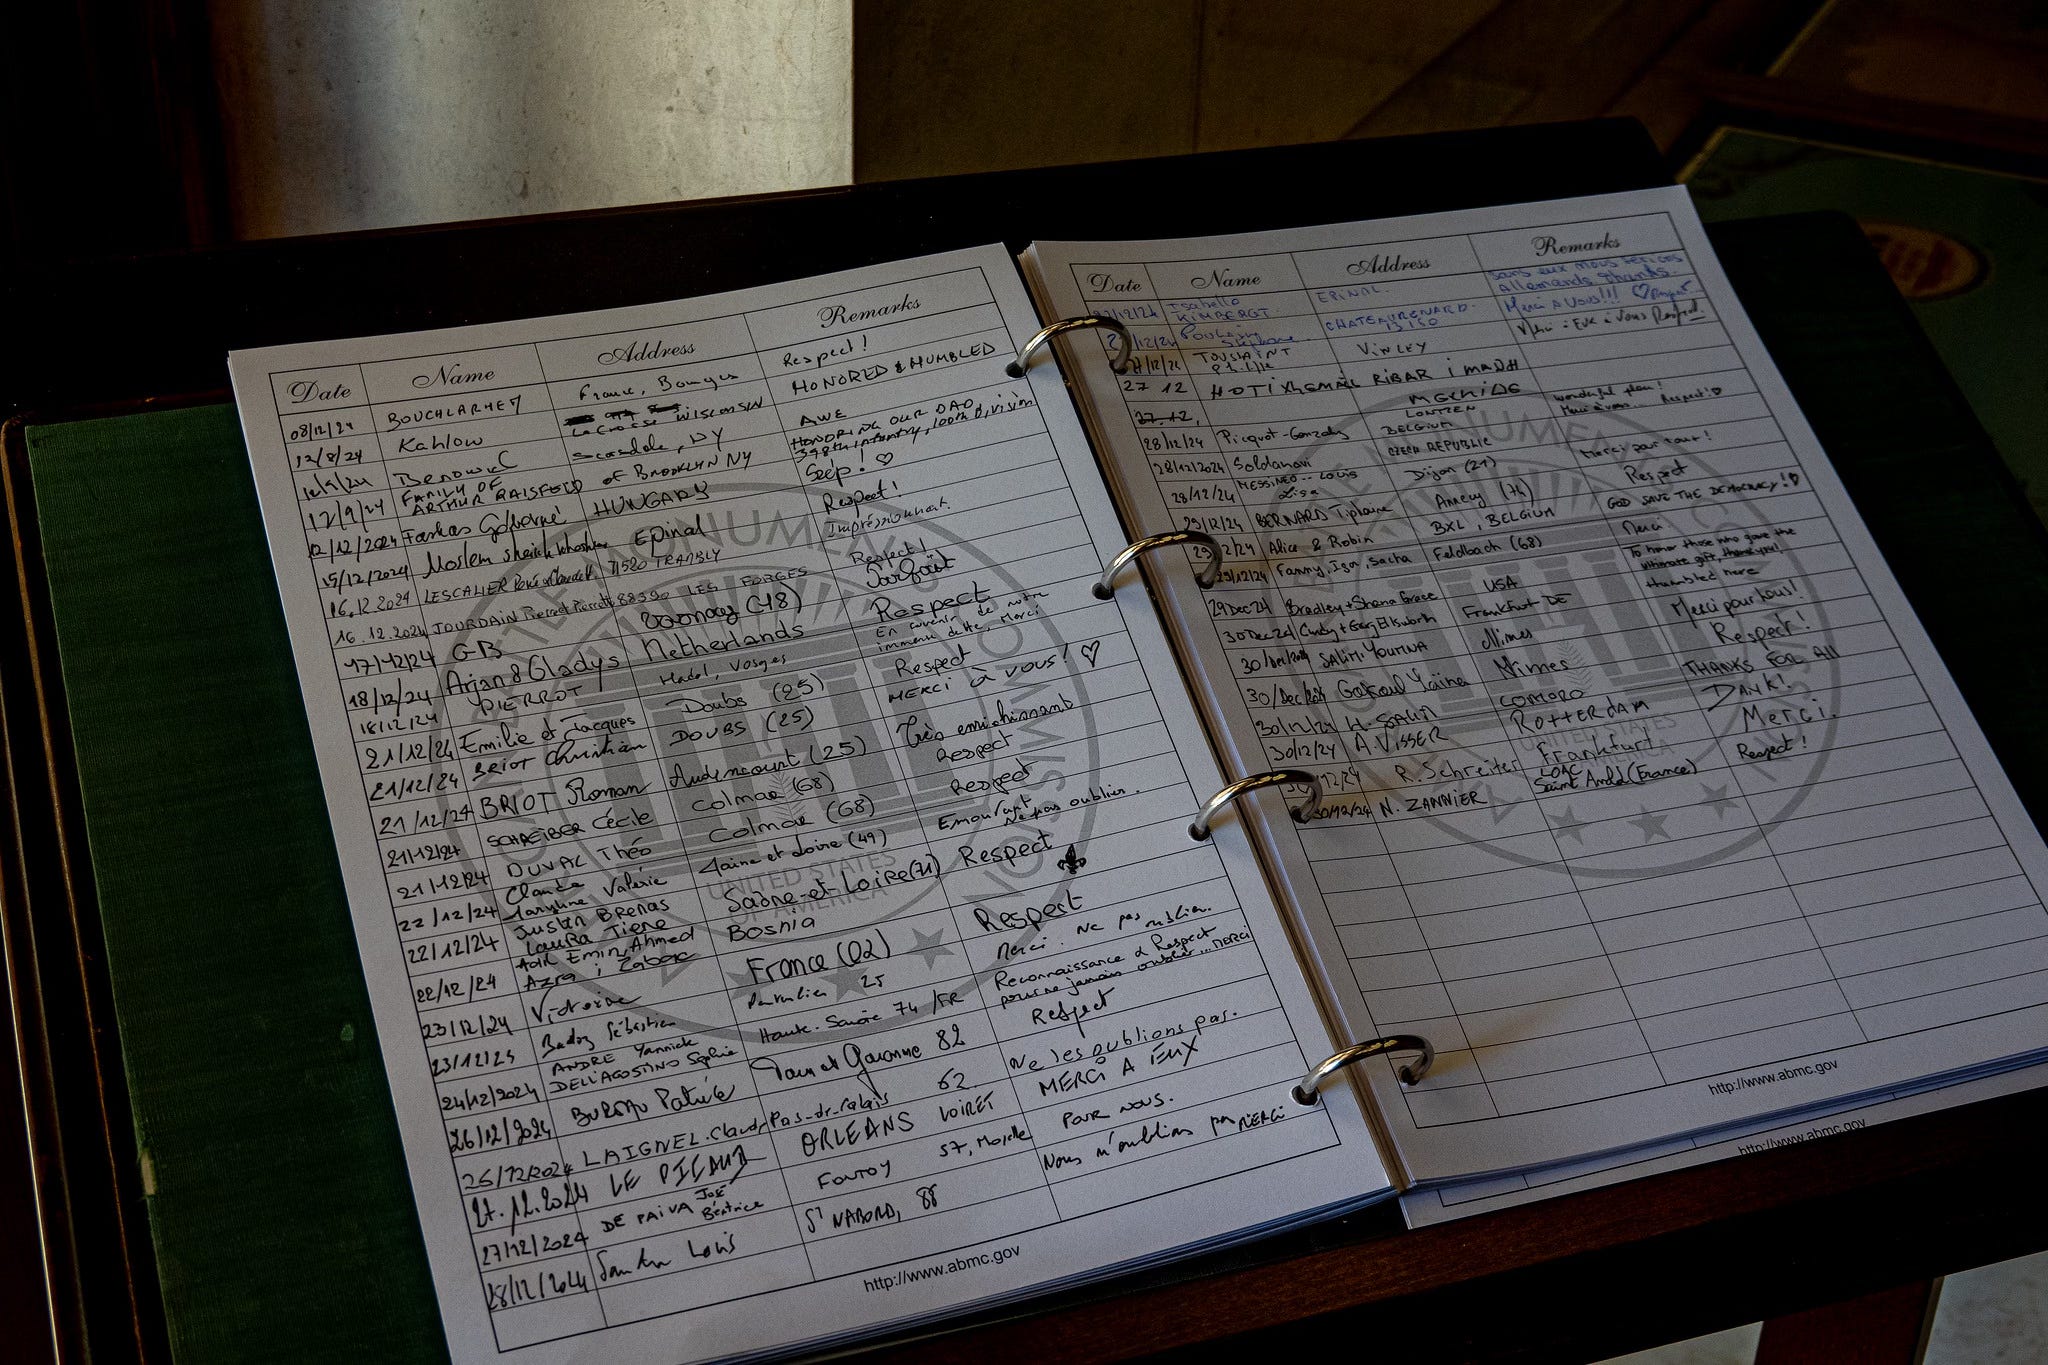 Date Name Address Remarks
08/12/24 France, Respect!
12/8/24 Kahlow La Crosse WISCONSIN HONORED & HUMBLED
Scarsdale, NY AWE
12/9/24 FAMILY OF ARTHUR RAISFELD of BROOKLYN NY HONORING OUR DAD 398th infantry, 100th Division
12/12/2024 Farkas HUNGARY Szép! ♡
15/12/2024 Moslem Epinal Respect!
16.12.2024 LESCALIER 71520 TRAMBLY Impressionnant.
16.12.2024 JOURDAIN Pierre et Pierrette 88390 LES FORGES Respect!
17/12/24 GB (48) Parfait
18/12/24 Arjan & Gladys Netherlands Respect
18/12/24 PIERROT Hadol, Vosges En souvenir de notre immense dette, Merci
21/12/24 Emilie et Jacques Doubs (25) Respect
21/12/24 BRIOT Christian DOUBS (25) MERCI à VOUS! ♡
21/12/24 BRIOT Roman Audincourt (25) Très enrichissant
21/12/24 SCHREIBER Cécile Colmar (68) Respect
21/12/24 DUVAL Théo Colmar (68) Respect
22/12/24 Claude Valérie Maine et Loire (49) Emouvant Ne pas oublier.
22/12/24 Justin BRENAS Laura Saône-et-Loire (71) Respect
22/12/24 Adil Emin, Ahmed Azra i Bosnia
23/12/24 Victorine France (02) Respect
23/12/23 Sébastien 25 Merci. Ne pas oublier.
24/12/2024 ANDRE Yannick DELL'AGOSTINO Sophie Haute-Savoie 74 /FR Reconnaissance & Respect pour ne jamais oublier... MERCI
26/12/2024 Patrick Tarn et Garonne 82 Respect
26/12/2024 LAIGNEL Claude Pas-de-Calais 62. Ne les oublions pas.
27.12.2024 LE ORLEANS LOIRET MERCI A EUX
27/12/2024 DE PAIVA José Béatrice FONTOY 57, Moselle POUR NOUS.
28/12/2024 Louis ST NABORD, 88 Nous n'oublions pas MERCI
http://www.abmc.gov
Date Name Address Remarks
27/12/24 Isabelle KIMBERGT EPINAL. Sans eux nous serions Allemands thanks.
27/12/24 Poulain CHATEAURENARD. 13150 Merci A Vous!!! ♡ Respect.
27/12/24 TOUSSAINT VINCEY Merci à EUX à Vous Respect.
27 12 RIBAR i MADH
27.12.
28/12/24 Picquot-Gonzalez LONTZEN BELGIUM wonderful place! Merci à vous... Respect! ♡
28/12/2024 Soldanovi CZECH REPUBLIC
28/12/24 MESSINEO.. Louis Lisa Dijon (21) Merci pour tout!
29/12/24 BERNARD Tiphaine Annecy (74) Respect
29/12/24 Alice & Robin BXL, BELGIUM GOD SAVE THE DEMOCRACY! ♡
29/12/24 Fanny, Igor, Sacha Feldbach (68) Merci
29 Dec 24 Bradley + Shana Grace USA To honor those who gave the ultimate gift, thank you!
30 Dec 24 Cindy + Greg Ellsworth Frankfurt DE Humbled here
30/Dec/2024 SALIMI YOUMNA Nîmes Merci pour tous!
30/Dec/2024 Nîmes Respect!
30/12/24 H. SALIM COMORO THANKS FOR All
30/12/24 A. VISSER ROTTERDAM DANK!
12/24 R. Schreiter Frankfurt Merci.
30/12/24 N. ZANNIER Saint Amé (France) Respect!
http://www.abmc.gov
http://www.abmc.gov
AMERICAN BATTLE MONUMENTS COMMISSION
UNITED STATES OF AMERICA
UNITED STATES OF AMERICA